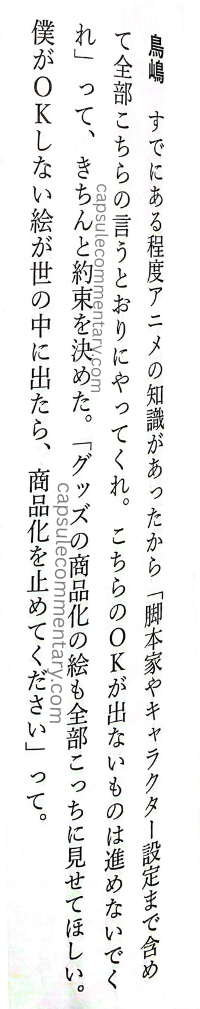 鳥嶋　すでにある程度アニメの知識があったから「脚本家やキャラクター設定まで含め
て全部こちらの言うとおりにやってくれ。こちらのOKが出ないものは進めないでく
れ」って、きちんと約束を決めた。「グッズの商品化の絵も全部こっちに見せてほしい。
僕がOKしない絵が世の中に出たら、商品化を止めてください」って。
capsulecommentary.com
capsulecommentary.com